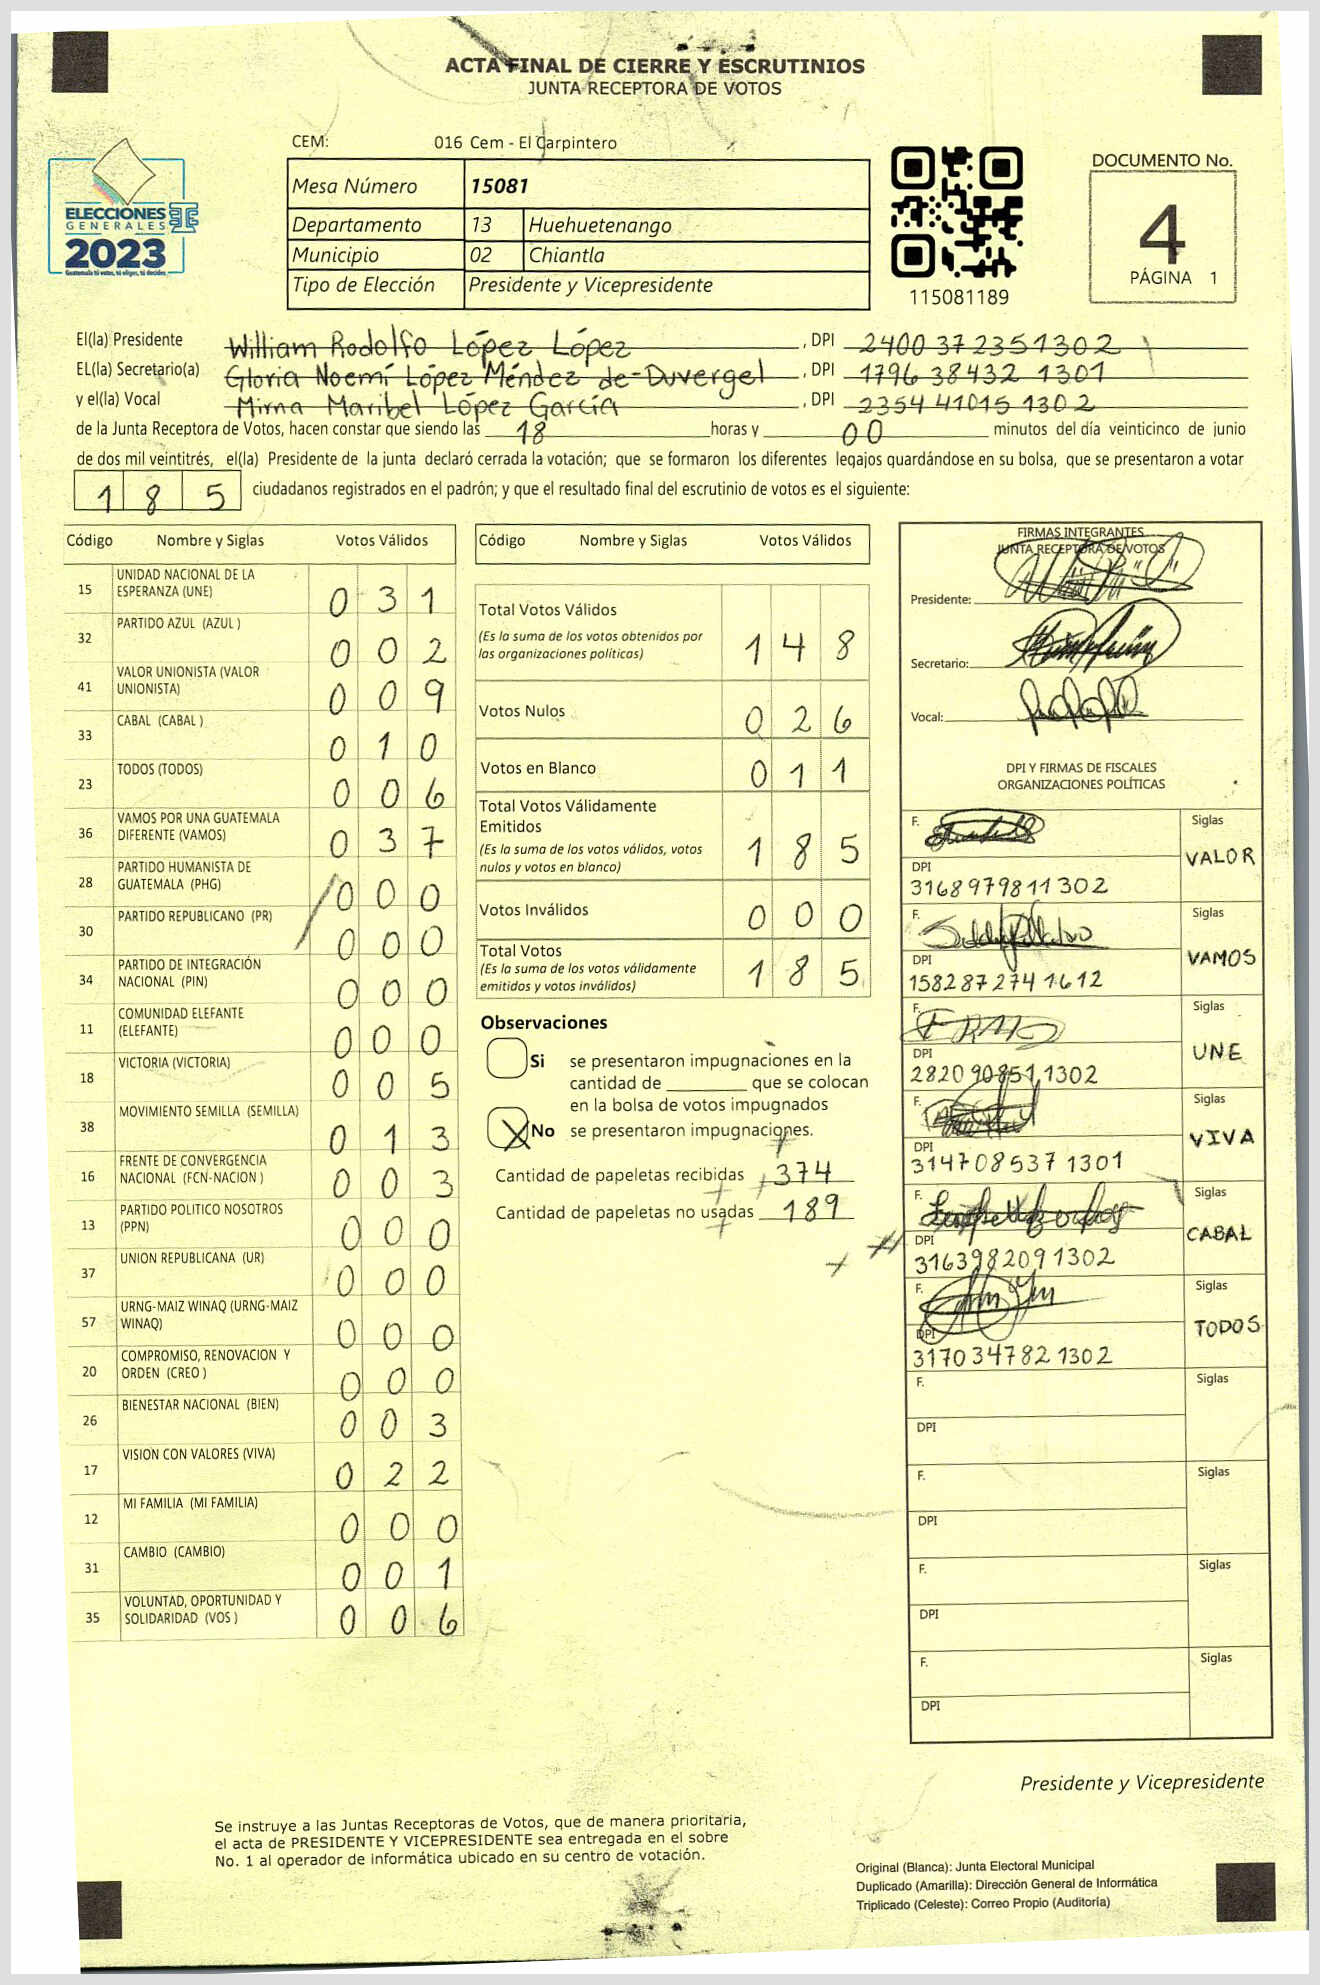 ACTA FINAL DE CIERRE Y ESCRUTINIOS
JUNTA RECEPTORA DE VOTOS
CEM: 016 Cem - El Carpintero
ELECCIONES
GENERALES
2023
Guatemala tú votas, tú eliges, tú decides
Mesa Número 15081
Departamento 13 Huehuetenango
Municipio 02 Chiantla
Tipo de Elección Presidente y Vicepresidente
115081189
DOCUMENTO No.
4
PÁGINA 1
El(la) Presidente William Rodolfo López López , DPI 2400 37235 1302
EL(la) Secretario(a) Gloria Noemí López Méndez de Duvergel , DPI 1796 38432 1301
y el(la) Vocal Mirna Maribel López García , DPI 2354 41015 1302
de la Junta Receptora de Votos, hacen constar que siendo las 18 horas y 00 minutos del día veinticinco de junio
de dos mil veintitrés, el(la) Presidente de la junta declaró cerrada la votación; que se formaron los diferentes legajos guardándose en su bolsa, que se presentaron a votar
185 ciudadanos registrados en el padrón; y que el resultado final del escrutinio de votos es el siguiente:
Código Nombre y Siglas Votos Válidos
15 UNIDAD NACIONAL DE LA ESPERANZA (UNE) 031
32 PARTIDO AZUL (AZUL ) 002
41 VALOR UNIONISTA (VALOR UNIONISTA) 009
33 CABAL (CABAL ) 010
23 TODOS (TODOS) 006
36 VAMOS POR UNA GUATEMALA DIFERENTE (VAMOS) 037
28 PARTIDO HUMANISTA DE GUATEMALA (PHG) 000
30 PARTIDO REPUBLICANO (PR) 000
34 PARTIDO DE INTEGRACIÓN NACIONAL (PIN) 000
11 COMUNIDAD ELEFANTE (ELEFANTE) 000
18 VICTORIA (VICTORIA) 005
38 MOVIMIENTO SEMILLA (SEMILLA) 013
16 FRENTE DE CONVERGENCIA NACIONAL (FCN-NACION ) 003
13 PARTIDO POLITICO NOSOTROS (PPN) 000
37 UNION REPUBLICANA (UR) 000
57 URNG-MAIZ WINAQ (URNG-MAIZ WINAQ) 000
20 COMPROMISO, RENOVACION Y ORDEN (CREO ) 000
26 BIENESTAR NACIONAL (BIEN) 003
17 VISION CON VALORES (VIVA) 022
12 MI FAMILIA (MI FAMILIA) 000
31 CAMBIO (CAMBIO) 001
35 VOLUNTAD, OPORTUNIDAD Y SOLIDARIDAD (VOS ) 006
Código Nombre y Siglas Votos Válidos
Total Votos Válidos 148
(Es la suma de los votos obtenidos por
las organizaciones políticas)
Votos Nulos 026
Votos en Blanco 011
Total Votos Válidamente
Emitidos 185
(Es la suma de los votos válidos, votos
nulos y votos en blanco)
Votos Inválidos 000
Total Votos 185
(Es la suma de los votos válidamente
emitidos y votos inválidos)
Observaciones
Si se presentaron impugnaciones en la
cantidad de ________ que se colocan
en la bolsa de votos impugnados
X No se presentaron impugnaciones.
Cantidad de papeletas recibidas 374
Cantidad de papeletas no usadas 189
FIRMAS INTEGRANTES
JUNTA RECEPTORA DE VOTOS
Presidente:
Secretario:
Vocal:
DPI Y FIRMAS DE FISCALES
ORGANIZACIONES POLÍTICAS
F. Siglas
VALOR
DPI
3168979811302
F. Siglas
VAMOS
DPI
1582872741612
F. Siglas
UNE
DPI
2820908511302
F. Siglas
VIVA
DPI
3147085371301
F. Siglas
CABAL
DPI
3163982091302
F. Siglas
TODOS
DPI
3170347821302
F. Siglas
DPI
F. Siglas
DPI
F. Siglas
DPI
F. Siglas
DPI
Presidente y Vicepresidente
Se instruye a las Juntas Receptoras de Votos, que de manera prioritaria,
el acta de PRESIDENTE Y VICEPRESIDENTE sea entregada en el sobre
No. 1 al operador de informática ubicado en su centro de votación.
Original (Blanca): Junta Electoral Municipal
Duplicado (Amarilla): Dirección General de Informática
Triplicado (Celeste): Correo Propio (Auditoría)